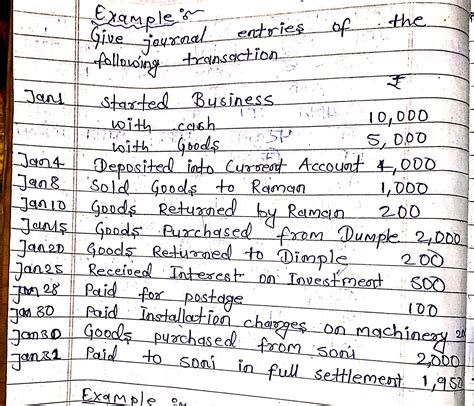 Example :-
Give journal entries of the
following transaction
₹
Jan1 Started Business
with cash 10,000
with Goods 5,000
Jan4 Deposited into Current Account 4,000
Jan8 Sold Goods to Raman 1,000
Jan10 Goods Returned by Raman 200
Jan15 Goods Purchased from Dumple 2,000
Jan20 Goods Returned to Dimple 200
Jan25 Received Interest on Investment 500
Jan 28 Paid for postage 100
Jan 30 Paid Installation charges on machinery
Jan30 Goods purchased from Soni 2,000
Jan31 Paid to Soni in full settlement 1,950
Example